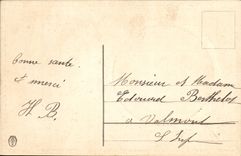 bonne santé
et merci
H B.
Monsieur et Madam
Edouard Berthelot
a Valmont
S. Inf